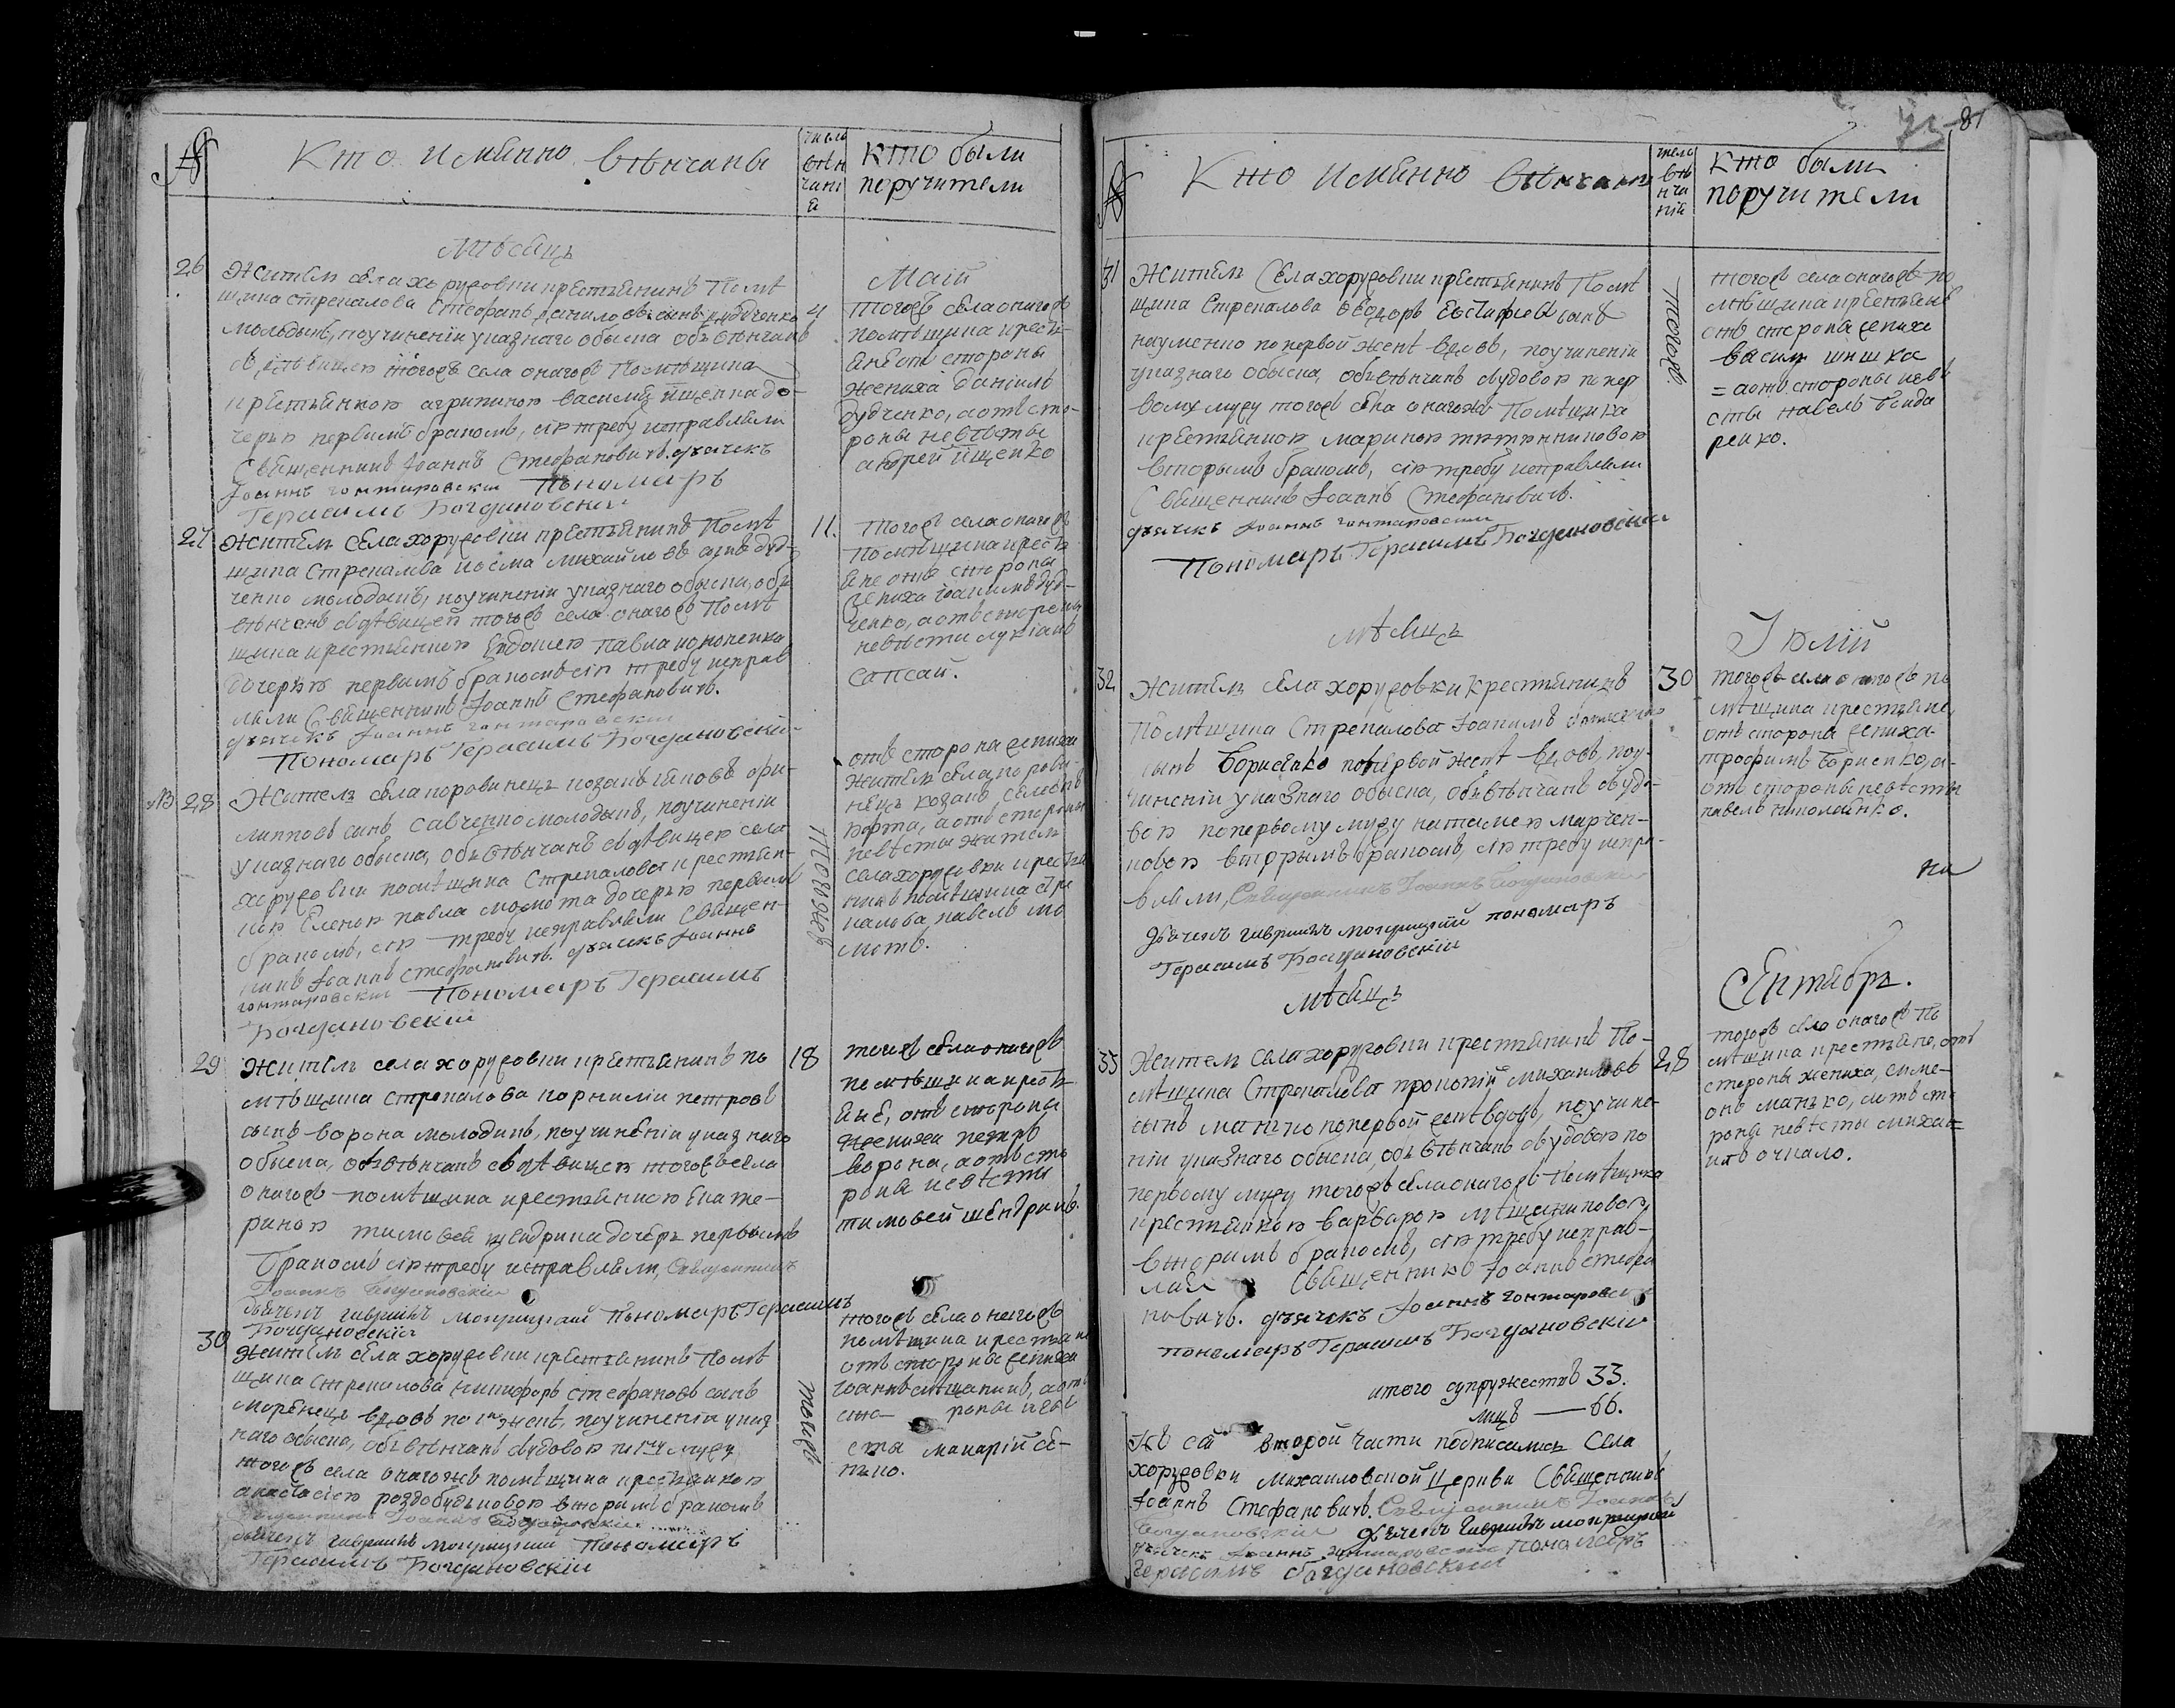 №
Кто имѣнно вѣнчаны
число
вѣн
чані
я
кто были
поручители
мѣсяцъ
Маій
26
Житель села хоружовки крестьянинъ помѣ
щика стрекалова Стефанъ даниловъ синъ дудченко
молодыкъ, поучиненіи указнаго обыска обвѣнчанъ
здѣвицею тогожъ села онагожъ Помѣщика
крестьянкою агрипиною василія йщенка до-
черью первымъ бракомъ, сію требу исправляли
Священникъ Іоаннъ Стефановичъ. дьячекъ
Іоаннъ гонтаровскій Пономаръ
Герасимъ Богдановскій
4
тогожъ села онагожъ
помѣщика кресть
яне отъ стороны
жениха даніилъ
дудченко, аотъ сто-
роны невѣсты
андрей йщенко
27
Житель села хоружовки крестьянинъ помѣ
щика Стрекалова косма михайловъ синъ дуд-
ченко молодыкъ, поучиненіи указнаго обыска, обв
вѣнчанъ здѣвицею тогожъ села онагожъ помѣ
щика крестьянкою Евдокіею павла кононенка
дочерью первымъ бракомъ сію требу исправ
ляли Священникъ Іоаннъ Стефановичъ.
дьячекъ Іоаннъ гонтаровскій
Пономаръ Герасимъ Богдановскій
11.
тогожъ села онагожъ
помѣщика кресть
яне отъ стороны
жениха іоакимъ дуд-
ченко, аотъ стороны
невѣсти лукіанъ
сапсай.
NB 28
Житель села коровинецъ козакъ іяковъ фи-
липповъ синъ савченко молодыкъ, поучиненіи
указнаго обыска, обвѣнчанъ здѣвицею села
хоружовки помѣщика Стрекалова крестьян-
кою Еленою павла момота дочерью первымъ
бракомъ, сію требу исправляли Священ-
никъ Іоаннъ стефановичъ. дьячекъ Іоаннъ
гонтаровскій Пономаръ Герасимъ
Богдановскій
тогожъ
отъ сторона жениха
житель села корови-
нецъ козакъ семенъ
корта, аотъ стороны
невѣсты житель
села хоружовки кресть
нинъ помѣщика стре
калова павелъ мо
мотъ.
29
Житель села хоружовки крестьянинъ по
мѣщика стрекалова корнилій петровъ
сынъ ворона молодикъ, поучиненіи указнаго
обыска, обвѣнчанъ здѣвицею тогожъ села
онагожъ помѣщика крестьянкою Екате-
риною тимофея щендрика дочерь первымъ
бракомъ сію требу исправляли, Священникъ
Іоаннъ Богдановскій
дьячекъ гавриилъ могрицкій Пономаръ Герасимъ
Богдановскій
18
тогожъ села онагожъ
помѣщика кресть
яне, отъ стороны
жениха петръ
ворона, аотъ сто
роны невѣсты
тимофей шендрикъ.
30
Житель села хоружовки крестьянинъ помѣ
щика стрекалова никифоръ стефановъ синъ
вдовъ по 1й женѣ, поучиненіи указ
наго обыска, обвѣнчанъ звдовою по 1му мужу
тогожъ села онагожъ помѣщика крестьянкою
анастасіею роздобудьковою вторимъ бракомъ
Священникъ Іоаннъ Богдановскій
дьячекъ гавриилъ могрицкій Пономаръ
Герасимъ Богдановскій
тогожъ
тогожъ села онагожъ
помѣщика крестьяне
отъ стороны жениха
іоаннъ мѣщанинъ, аотъ
сто- роны невѣ
сты макарій

81
№
Кто имѣнно вѣнчаны
число
вѣ
нча
ній
кто были
поручители
31
Житель Села хоружовки крестьянинъ Помѣ
щика Стрекалова Ѳеодоръ Евстафіевъ сынъ
науменко попервой женѣ вдовъ, поучиненіи
указнаго обыска, обвѣнчанъ звдовою попер
вому мужу тогожъ села онагожъ Помѣщика
крестьянкою мариною
вторымъ бракомъ, сію требу исправляли
Священникъ Іоаннъ Стефановичъ.
дьячекъ Іоаннъ гонтаровскій
Пономаръ Герасимъ Богдановскій
тогожъ
тогожъ села онагожъ по
мѣщика крестьяне
отъ стороны жениха
василь шишка
= аотъ стороны невѣ
сты павелъ бонда
ренко.
мѣсяцъ
Іюлій
32
Житель села хоружовки крестьянинъ
помѣщика Стрекалова Іоакимъ
сынъ Борисенко попервой женѣ вдовъ, поу-
чиненіи указнаго обыска, обвѣнчанъ звдо-
вою попервому мужу наталіею марчен-
ковою вторымъ бракомъ, сію требу испра-
вляли, Священникъ Іоаннъ Богдановскій
дьячекъ гавриилъ могрицкій пономаръ
Герасимъ Богдановскій
30
тогожъ села онагожъ по
мѣщика крестьяне,
отъ стороны жениха
трофимъ Борисенко, а
отъ стороны невѣсты
павелъ николаенко.
мѣсяцъ
Сентябрь.
33
Житель села хоружовки крестьянинъ По-
мѣщика Стрекалова прокопій михаиловъ
сынъ манько попервой женѣ вдовъ, поучине-
ніи указнаго обыска, обвѣнчанъ звдовою по
первому мужу тогожъ села онагожъ помѣщика
крестьянкою варварою мѣщаниковою
вторимъ бракомъ, сію требу исправ-
ляли Священникъ Іоаннъ стефа
новичъ. дьячекъ Іоаннъ гонтаровскій
пономаръ Герасимъ Богдановскій
28
тогожъ села онагожъ по
мѣщика крестьяне, отъ
стороны жениха, симе-
онъ манько, аотъ сто
роны невѣсты михаи=
илъ очкало.
итого супружествъ 33.
лицъ — 66.
Къ сей второй части подписались Села
хоружовки михаиловской церкви Священникъ
Іоаннъ Стефановичъ. Священникъ Іоаннъ
Богдановскій дьячекъ гавриилъ могрицкій
дьячекъ Іоаннъ гонтаровскій Пономаръ
герасимъ богдановскій